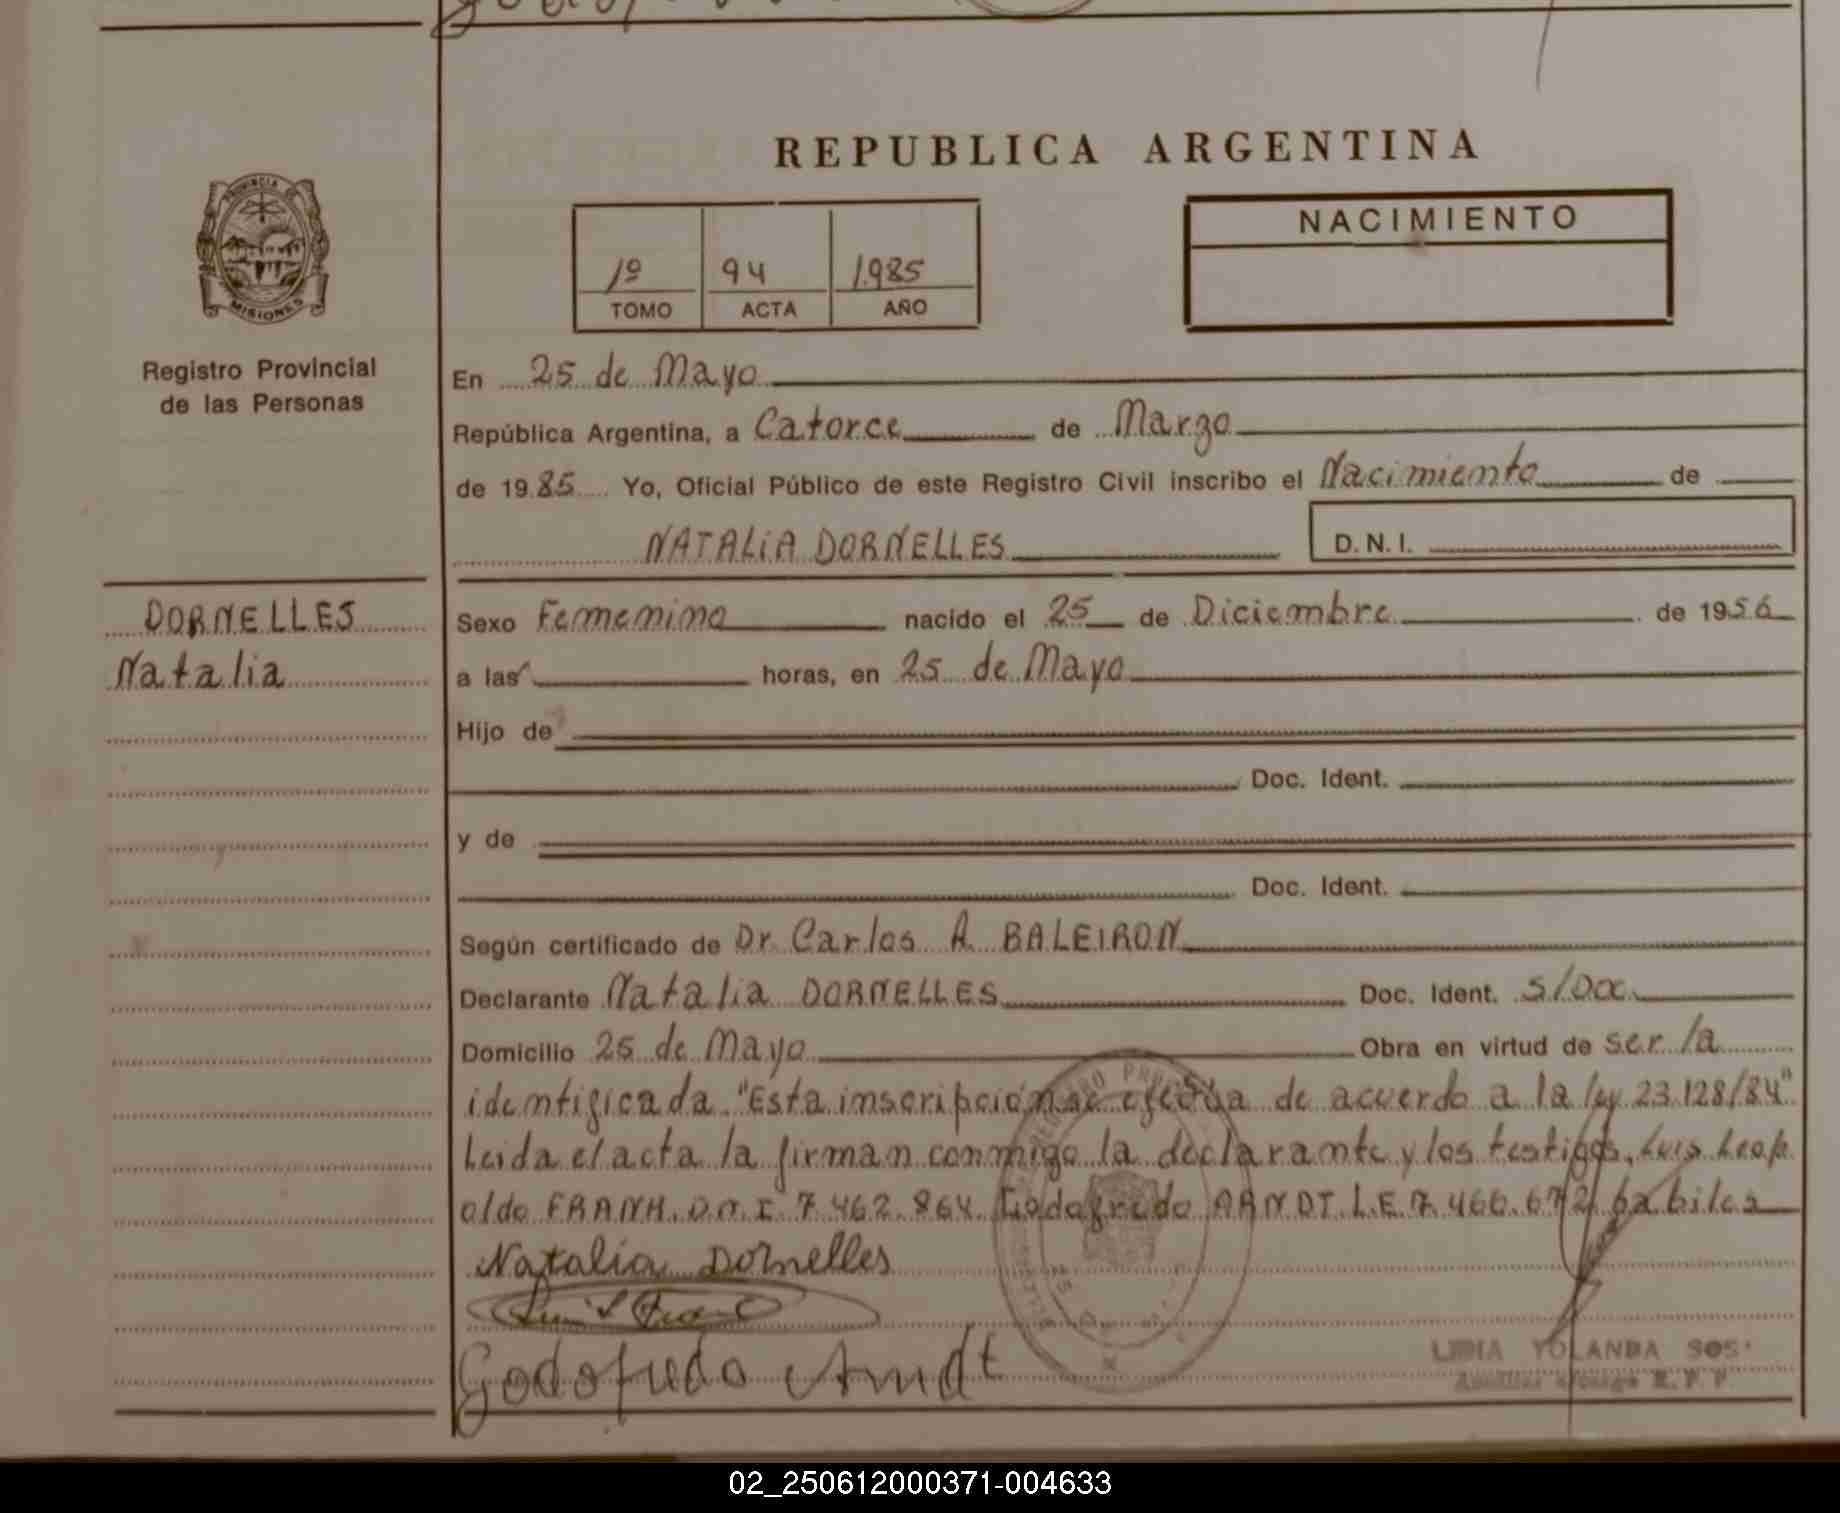 REPUBLICA ARGENTINA
PROVINCIA DE
MISIONES
Registro Provincial
de las Personas
1º 94 1985
TOMO ACTA AÑO
NACIMIENTO
En 25 de Mayo
República Argentina, a Catorce de Marzo
de 1985 Yo, Oficial Público de este Registro Civil inscribo el Nacimiento de
NATALIA DORNELLES D.N.I.
DORNELLES
Natalia
Sexo Femenino nacido el 25 de Diciembre de 1956
a las horas, en 25 de Mayo
Hijo de
Doc. Ident.
y de
Doc. Ident.
Según certificado de Dr. Carlos A. BALEIRON
Declarante Natalia DORNELLES Doc. Ident. S/Doc.
Domicilio 25 de Mayo Obra en virtud de ser la
identificada. "Esta inscripción se efectúa de acuerdo a la ley 23.128/84"
Leida el acta la firman conmigo la declarante y los testigos, Luis Leop
oldo FRANK. D.N.I. 7.462.864. Godofredo ARNDT. L.E. 7.466.672 habiles
Natalia Dornelles
Godofredo Arndt
LIDIA YOLANDA SOS
02_250612000371-004633